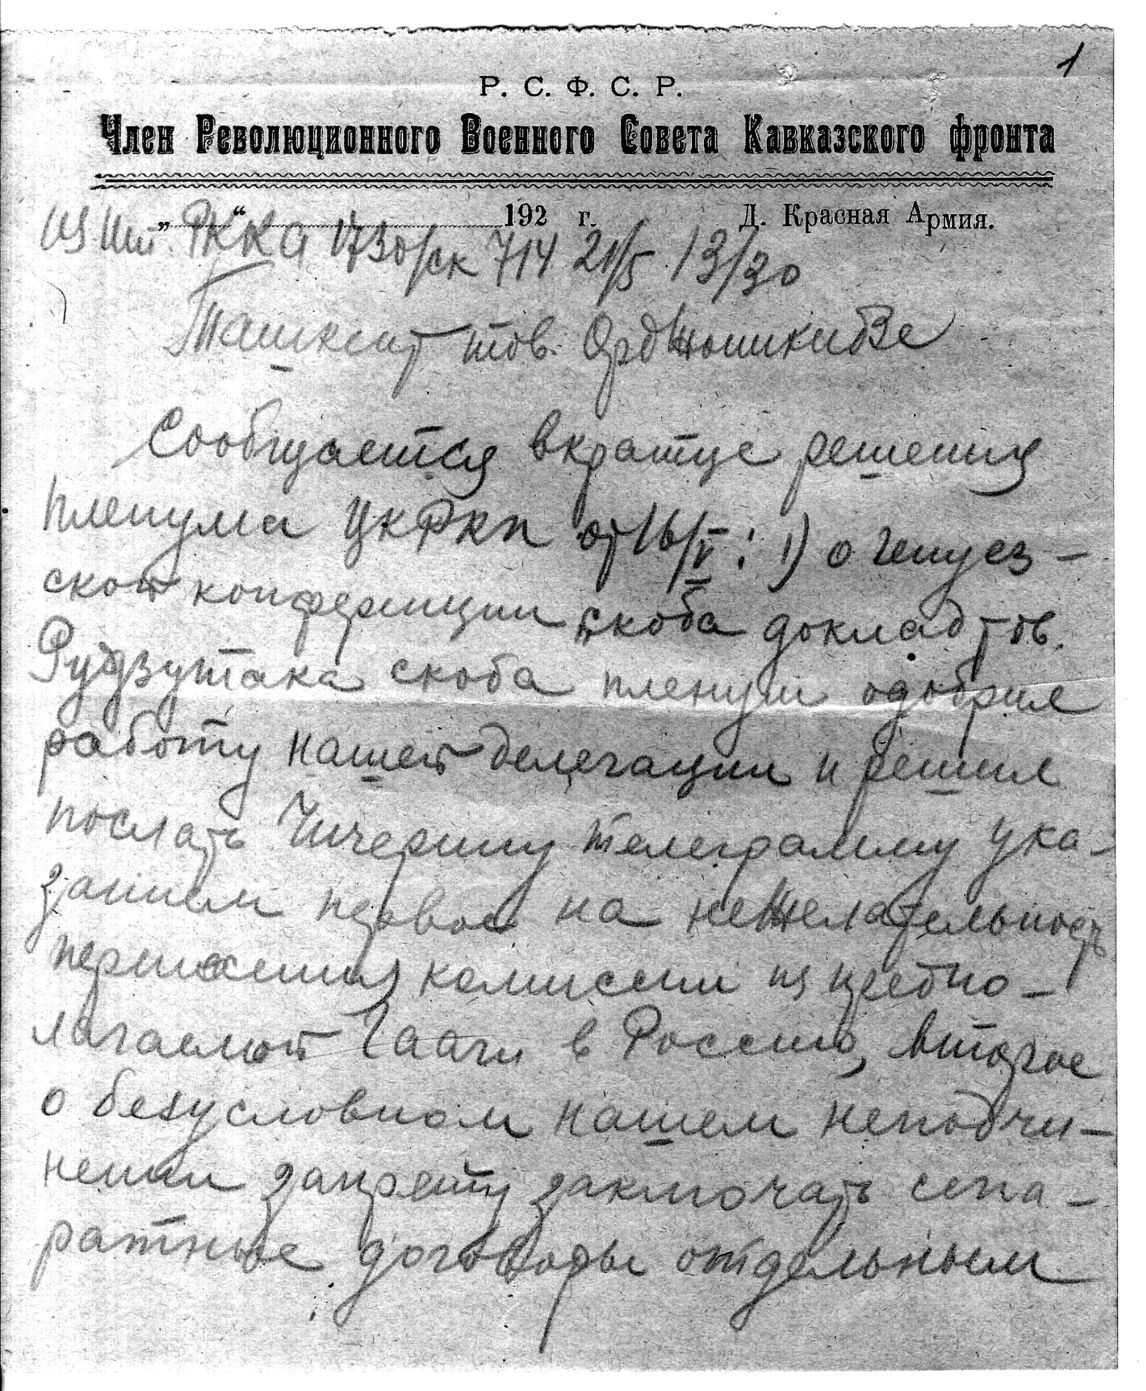 1
Р. С. Ф. С. Р.
Член Революционного Военного Совета Кавказского фронта
„ “ 192 г. Д. Красная Армия.
Из РККА 1730/ск 714 21/5 13/30
Ташкент тов. Орджоникидзе
Сообщается вкратце решения
пленума ЦКРКП от 16/V : 1) о генуез-
ской конференции скоба доклад тов.
Рудзутака скоба пленум одобрил
работу нашей делегации и решил
послать Чичерину телеграмму ука-
занием первое на нежелательность
перенесения комиссии из предпо-
лагаемой Гааги в Россию, второе
о безусловном нашем неподчи-
нении запрету заключать сепа-
ратные договоры отдельным